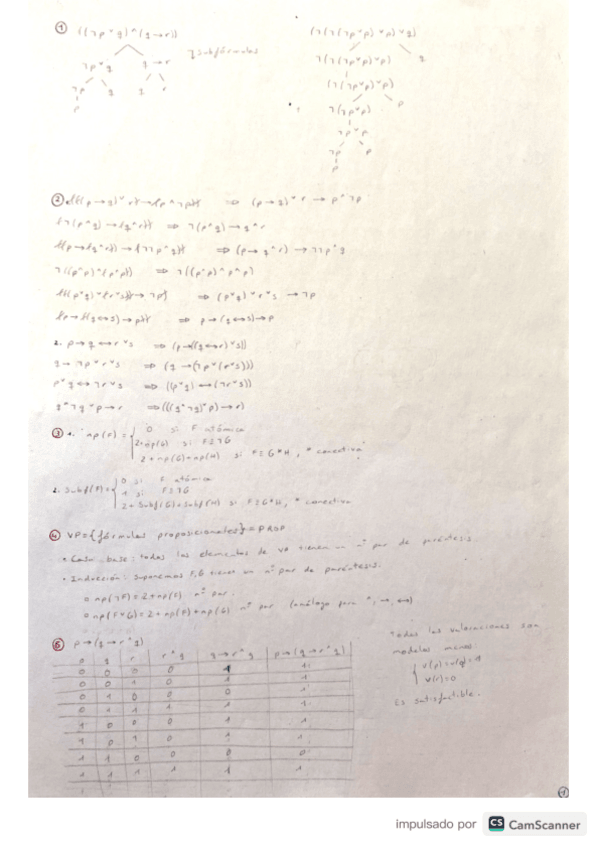 ① ((¬p ∨ q) ∧ (q → r))
¬p ∨ q   q → r   } Subfórmulas
¬p   q   q   r
p
(¬(¬(¬p ∨ p) ∨ p) ∨ q)
¬(¬(¬p ∨ p) ∨ p)   q
(¬(¬p ∨ p) ∨ p)
¬(¬p ∨ p)   p
¬p ∨ p
¬p   p
p
② (((p → q) ∨ r) → (p ∧ ¬p)) ⇒ (p → q) ∨ r → p ∧ ¬p
(¬(p ∧ q) → (q ∧ r)) ⇒ ¬(p ∧ q) → q ∧ r
⇒ (p → q ∧ r) → ¬¬p ∧ q
⇒ (p ∨ q) ∨ r ∨ s → ¬p
(p → ((q ↔ s) → p)) ⇒ p → (q ↔ s) → p
2. p → q ↔ r ∨ s ⇒ (p → ((q ↔ r) ∨ s))
q → ¬p ∨ r ∨ s ⇒ (q → (¬p ∨ (r ∨ s)))
p ∨ q ↔ ¬r ∨ s ⇒ ((p ∨ q) ↔ (¬r ∨ s))
q ∧ ¬q ∨ p → r ⇒ (((q ∧ ¬q) ∨ p) → r)
③ 1. np(F) = { 0 si F atómica
2 + np(G) si F ≡ ¬G
2 + np(G) + np(H) si F ≡ G * H, * conectiva
2. Subf(F) = { 0 si F atómica
1 si F ≡ ¬G
2 + Subf(G) + Subf(H) si F ≡ G * H, * conectiva
④ VP = {fórmulas proposicionales} = PROP
• Caso base: todos los elementos de VP tienen un nº par de paréntesis.
• Inducción: suponemos F, G tienen un nº par de paréntesis.
np(¬F) = 2 + np(F) nº par.
np(F * G) = 2 + np(F) + np(G) nº par (análogo para ∧, →, ↔)
⑤ p → (q → r ∧ q)
p q r r ∧ q q → r ∧ q p → (q → r ∧ q)
0 0 0 0 1 1
0 0 1 0 1 1
0 1 0 0 0 1
0 1 1 1 1 1
1 0 0 0 1 1
1 0 1 0 1 1
1 1 0 0 0 0
1 1 1 1 1 1
todas las valoraciones son
modelos menos
{ v(p) = v(q) = 1
v(r) = 0
Es satisfactible.
①
impulsado por CS CamScanner